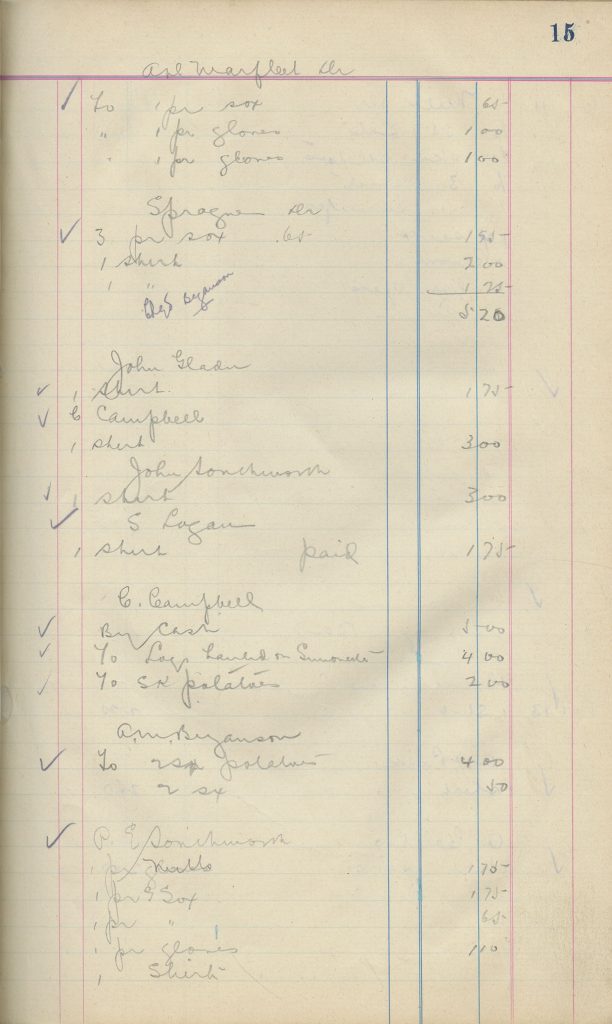 15
Marfleet Dr
To 1 pr sox 65
" 1 pr gloves 1 00
" 1 pr gloves 1 00
Sprague Dr
3 pr sox .65 1 95
1 shirt 2 00
1 " 1 25
Bezanson 5 20
John
1 shirt 1 75
C Campbell
1 shirt 3 00
John Southworth
1 shirt 3 00
S Logan
1 shirt paid 1 75
C. Campbell
By Cash 5 00
To Logs Hauled on 4 00
To SK potatoes 2 00
A.M. Bezanson
To 2 sx potatoes 4 00
2 sx 50
P. E Southworth
1 pr 1 75
1 pr Sox 1 75
1 pr " 65
1 pr gloves 1 10
1 Shirt